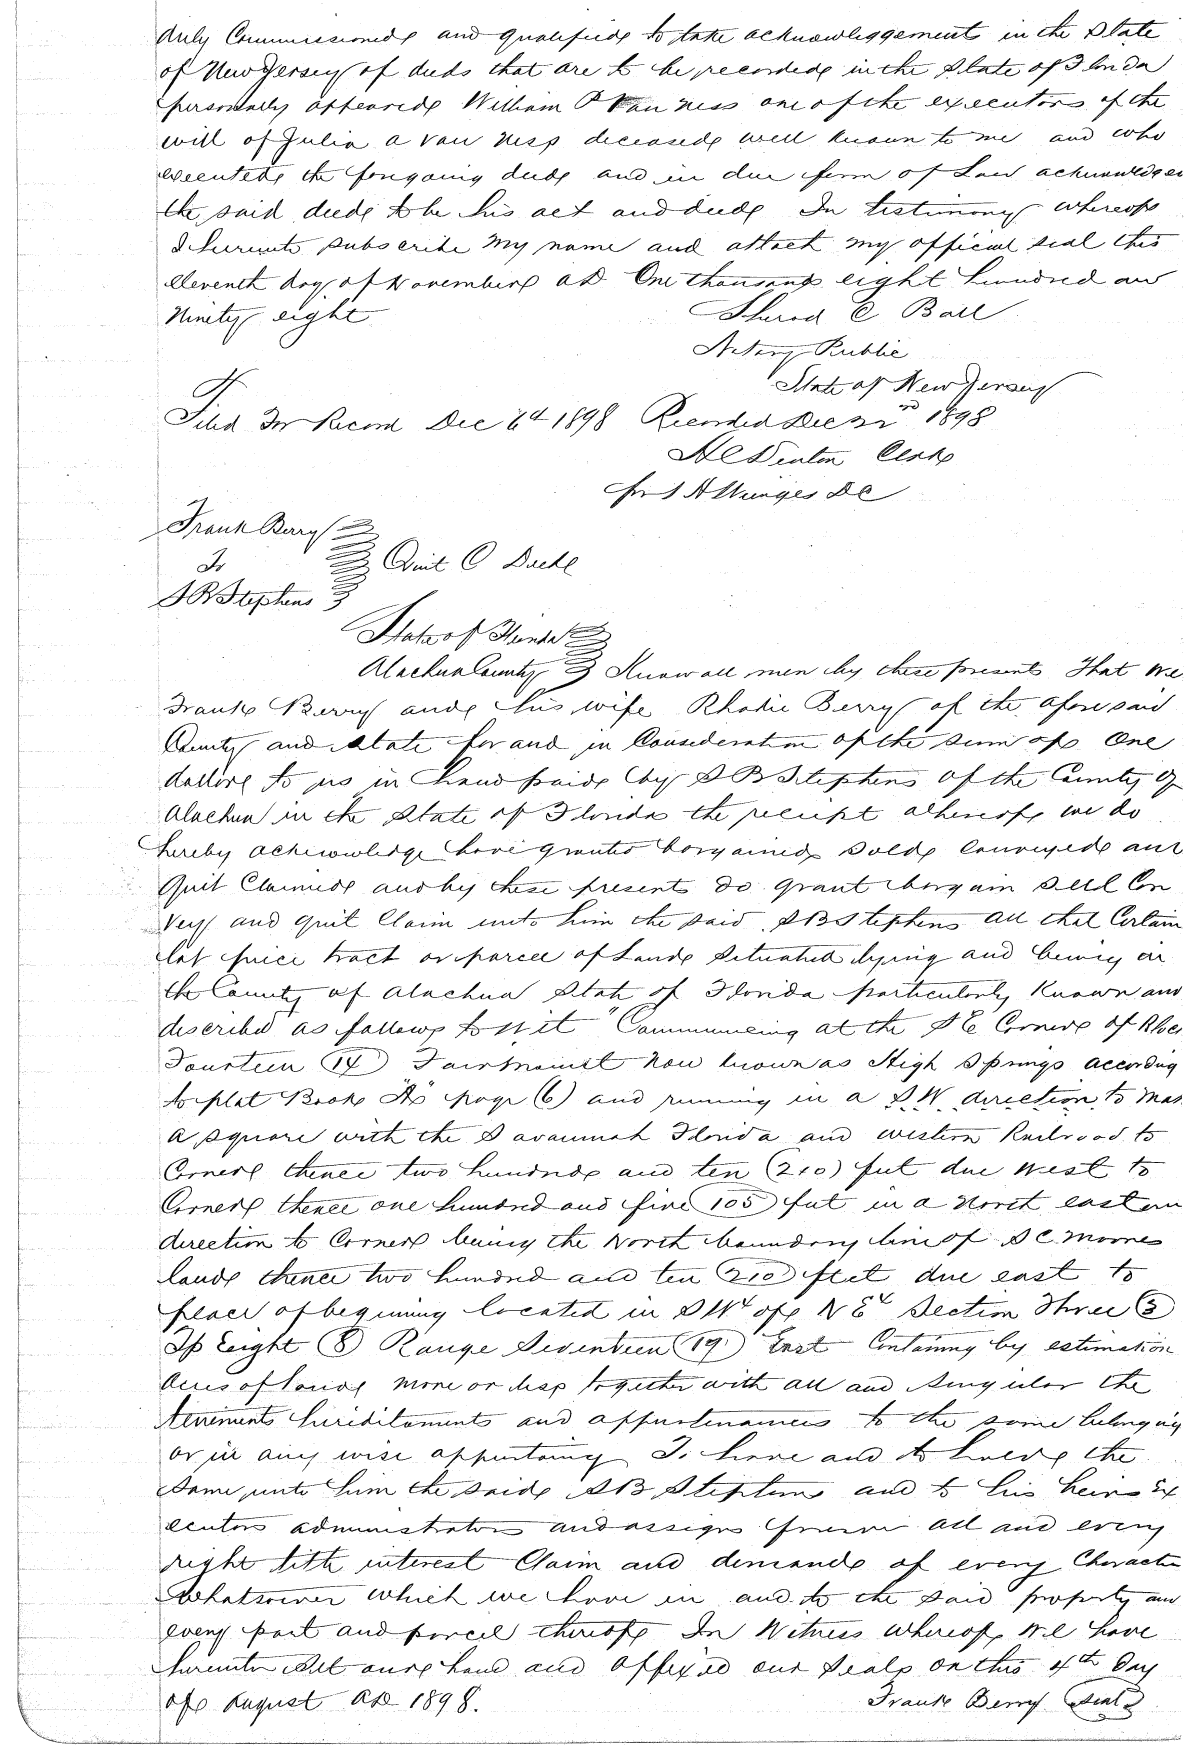 duly Commissioned and qualified to take acknowledgement in the State
of New Jersey of deeds that are to be recorded in the State of Florida
personally appeared William P Van Ness one of the executors of the
will of Julia A Van Ness deceased well known to me and who
executed the foregoing deed and in due form of Law acknowledged
the said deed to be his act and deed In testimony whereof
I hereunto subscribe my name and attach my official seal this
eleventh day of November AD One thousand eight hundred and
Ninety eight Sherod C Ball
Notary Public
State of New Jersey
Filed For Record Dec 6th 1898 Recorded Dec 1898
H C Denton Clerk
for DC
Frank Berry
To Quit C Deed
S B Stephens
State of Florida
Alachua County Know all men by these presents That we
Frank Berry and his wife Rhodie Berry of the aforesaid
County and State for and in Consideration of the sum of One
dollar to us in hand paid by S B Stephens of the County of
Alachua in the State of Florida the receipt whereof we do
hereby acknowledge have granted bargained sold conveyed and
Quit Claimed and by these presents do grant bargain sell Con
vey and quit Claim unto him the said S B Stephens all that Certain
lot piece tract or parcel of Land Situated lying and being in
the County of Alachua State of Florida particularly Known and
described as follows to wit "Commencing at the S E Corner of Bloc
Fourteen (14) Fairmount Now known as High Springs according
to plat Book "A" page (6) and running in a S.W. direction to Mak
a square with the Savannah Florida and western Railroad to
Corner thence two hundred and ten (210) feet due west to
Corner thence one hundred and five (105) feet in a North eastern
direction to Corner being the North boundary line of S C Moores
land thence two hundred and ten (210) feet due east to
place of begining located in SW4 of NE4 Section Three (3)
Tp Eight (8) Range Seventeen (17) East Containing by estimation
Acres of Land more or less together with all and Singular the
tenements hereditaments and appurtenances to the same belonging
or in any wise appertaing To have and to hold the
same unto him the said S B Stephens and to his heirs Ex
ecutors administrators and assigns forever all and every
right title interest Claim and demand of every Character
whatsoever which we have in and to the said property and
every part and parcel thereof In Witness whereof we have
hereunto set our hand and affixed our Seals on this 4th Day
of August AD 1898. Frank Berry (Seal)